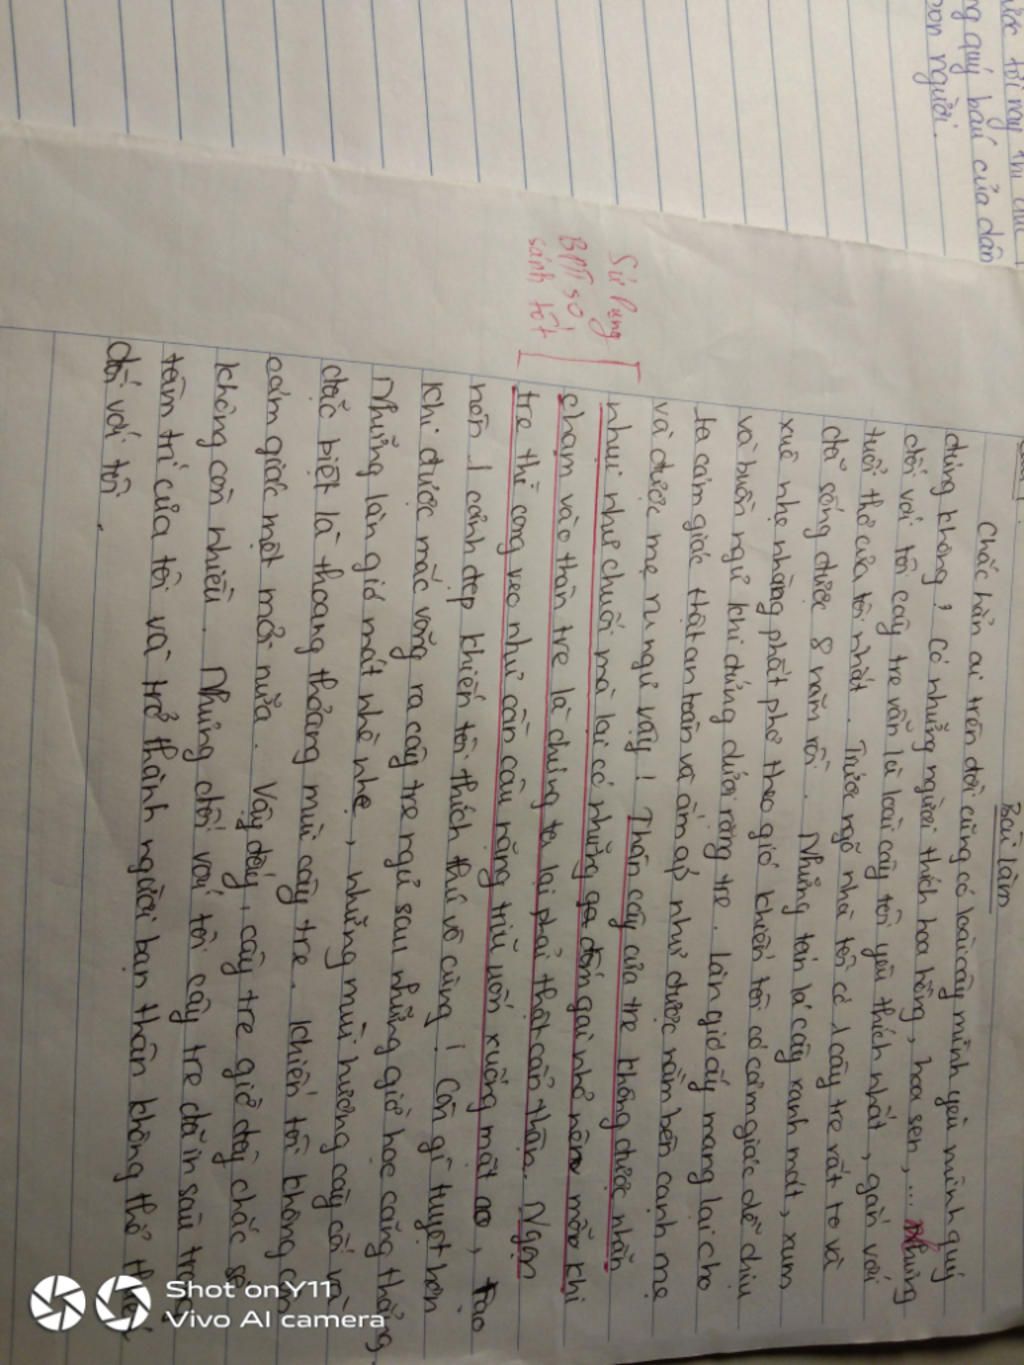 ước tôi nay thì chú
ng quý báu của dân
con người.
Bài làm
Chắc hẳn ai trên đời cũng có loài cây mình yêu mình quý
đúng không? Có những người thích hoa hồng, hoa sen,... Nhưng
đối với tôi cây tre vẫn là loài cây tôi yêu thích nhất, gắn với
tuổi thơ của tôi nhất. Trước ngõ nhà tôi có 1 cây tre rất to và
đã sống được 8 năm rồi. Những tán lá cây xanh mát, xum
xuê nhẹ nhàng phất phơ theo gió khiến tôi có cảm giác dễ chịu
và buồn ngủ khi đứng dưới rặng tre. Làn gió ấy mang lại cho
ta cảm giác thật an toàn và ấm áp như được nằm bên cạnh mẹ
và được mẹ ru ngủ vậy! Thân cây của tre không được nhẵn
nhụi như chuối mà lại có những gai nhỏ nên mỗi khi
chạm vào thân tre là chúng ta lại phải thật cẩn thận. Ngọn
tre thì cong veo như cần câu nặng trĩu uốn xuống mặt ao, tạo
nên 1 cảnh đẹp khiến tôi thích thú vô cùng! Còn gì tuyệt hơn
khi được mắc võng ra cây tre ngủ sau những giờ học căng thẳng.
Những làn gió mát nhè nhẹ, những mùi hương cây cối và
đặc biệt là thoang thoảng mùi cây tre. Khiến tôi không còn
cảm giác mệt mỏi nữa. Vậy đấy, cây tre giờ đây chắc sẽ
không còn nhiều. Nhưng đối với tôi cây tre đã in sâu
tâm trí của tôi và trở thành người bạn thân không thể
đối với tôi.
Sử dụng
BPTT so
sánh tốt
Shot on Y11
Vivo AI camera